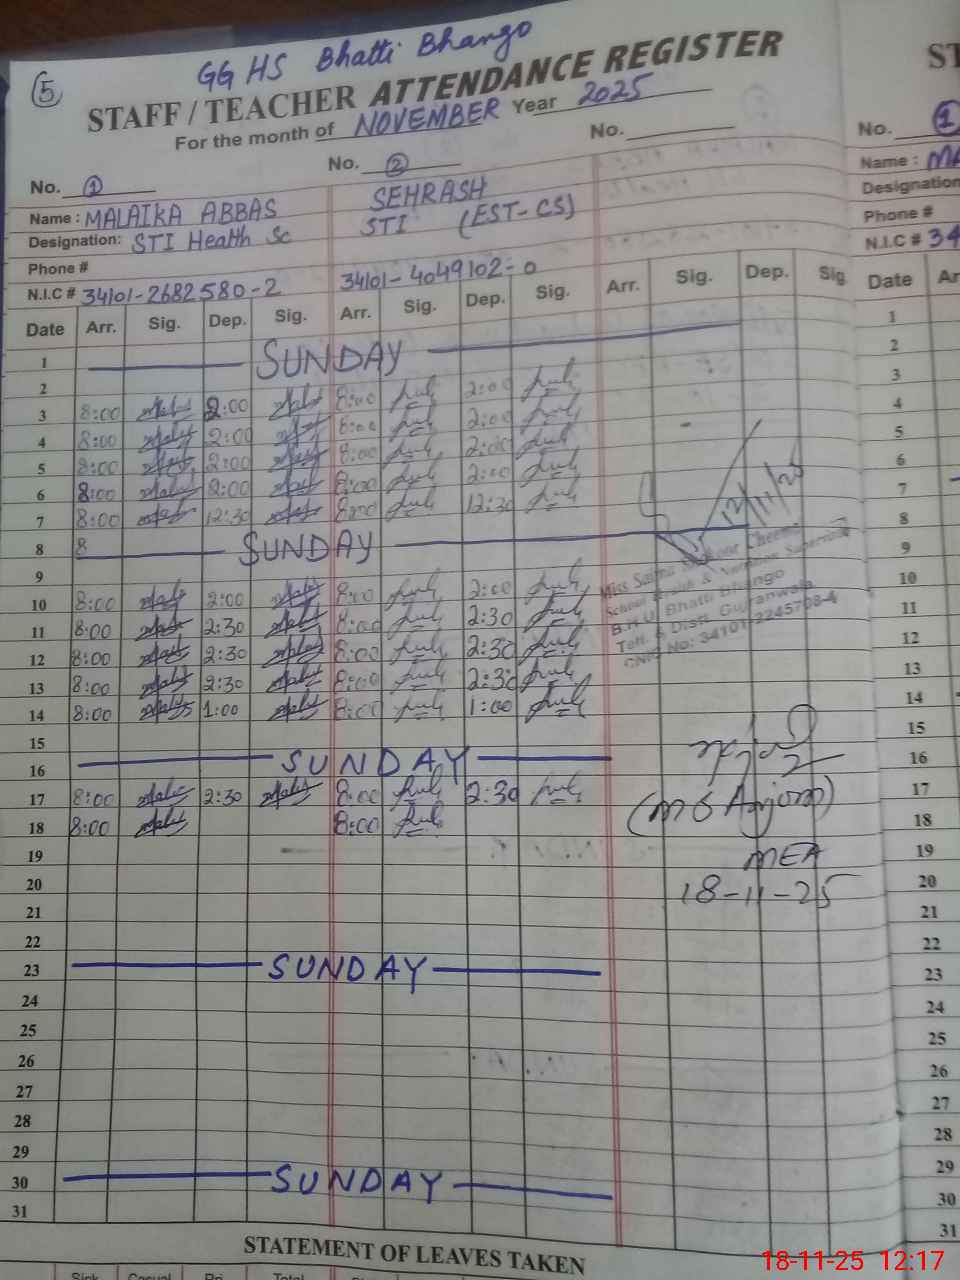 5
GGHS Bhatti Bhango
STAFF / TEACHER ATTENDANCE REGISTER
For the month of NOVEMBER Year 2025
No. 1 No. 2 No.
Name : MALAIKA ABBAS SEHRASH
Designation: STI Health Sc STI (EST-CS)
Phone #
N.I.C # 34101-2682580-2 34101-4049102-0
Date Arr. Sig. Dep. Sig. Arr. Sig. Dep. Sig. Arr. Sig. Dep. Sig
1 SUNDAY
2
3 8:00 2:00 8:00 2:00
4 8:00 2:00 8:00 2:00
5 8:00 2:00 8:00 2:00
6 8:00 2:00 8:00 2:00
7 8:00 12:30 8:00 12:30
8 8 SUNDAY
9
10 8:00 2:00 8:00 2:00
11 8:00 2:30 8:00 2:30
12 8:00 2:30 8:00 2:30
13 8:00 2:30 8:00 2:30
14 8:00 1:00 8:00 1:00
15
16 SUNDAY
17 8:00 2:30 8:00 2:30
18 8:00 8:00
19
20
21
22
23 SUNDAY
24
25
26
27
28
29
30 SUNDAY
31
12/11/25
Miss Saima Cheema
School Health & Nutrition Supervisor
B.H.U Bhatti Bhango
Teh. & Distt. Gujranwala
CNIC No: 34101-2245708-4
(MS Anjom)
MEA
18-11-25
STATEMENT OF LEAVES TAKEN
Sick Casual Pri. Total
ST
No. 1
Name : MA
Designation
Phone #
N.I.C # 34
Date Ar
1
2
3
4
5
6
7
8
9
10
11
12
13
14
15
16
17
18
19
20
21
22
23
24
25
26
27
28
29
30
31
18-11-25 12:17